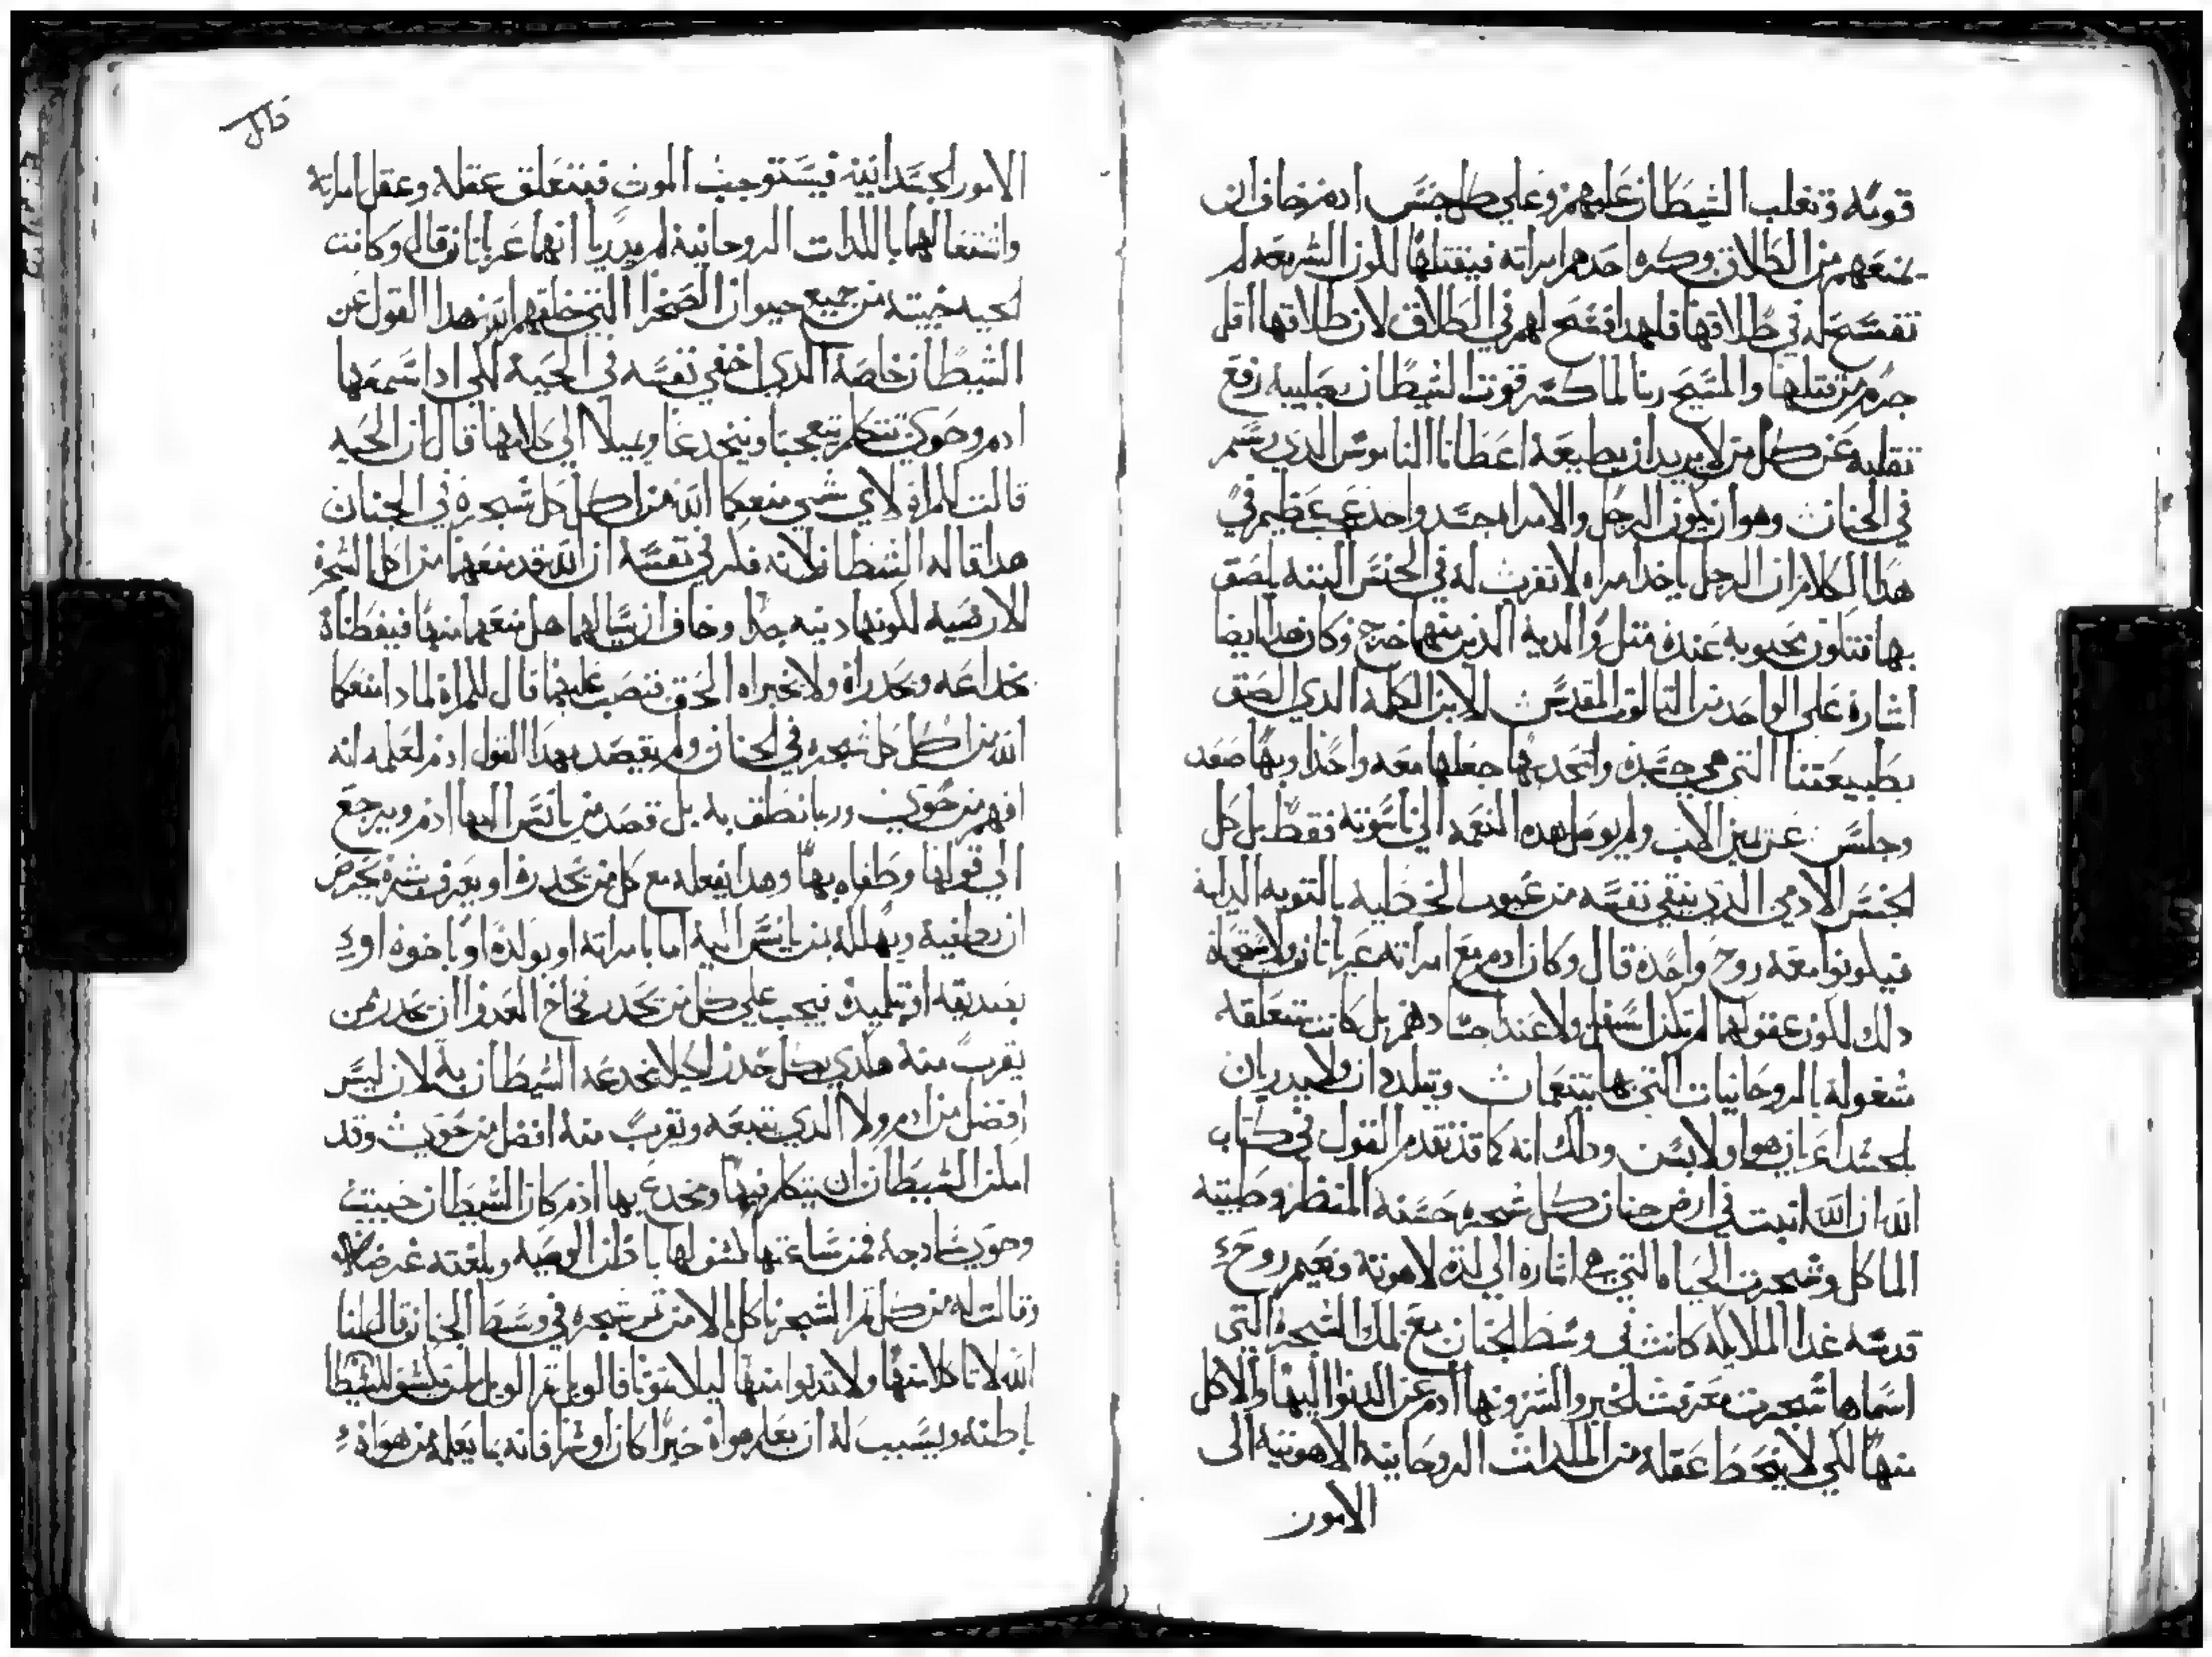 قوته وتغلب الشيطان عليهم وعلي كل جنس ادم خاف ان
يمنعهم من الطلاق وكره احدهم امراته فيقتلها لكون الشريعه لم
تفسح له في طلاقها فلهدا فسح لهم في الطلاق لان طلاقها اقل
جرم من قتلها والمسيح ربنا لما كسر قوت الشيطان بصليبه رفع
تقلبه عن كل من لا يريد ان يطيعه اعطانا الناموس الدي رسم
في الجنان وهو ان يكون الرجل والامراه جسد واحد عجب عظيم في
هدا الكلام ان الرجل ياخد امراه لا تقرب له في الجنس البته يلصق
بها فتكون محبوبه عنده مثل والديه الذين منهما خرج وكان هدا ايضا
اشاره علي الواحد من التالوت المقدس الابن الكلمه الدي الصق
بطبيعتنا التي هي جسده واتحد بها جعلها معه واحدا وبها صعد
وجلس عن يمين الاب ولم يوصل هده النعمه الي ناسوته فقط بل كل
الجنس الادمي الدي ينقي نفسه من عيوب الخطيه بالتوبه الدايمه
فيكونوا معه روح واحده قال وكان ادم مع امراته عريانان ولا
دلك لكون عقولهما لم تكن اسفل ولا عند اجسادهم بل كانت متعلقه
مشغوله بالروحانيات التي بها يتنعمان ويتلددان ولا يدريان
بالجسد اعريان هو اولابس ودلك انه كما قد تقدم القول في كتاب
الله ان الله انبت في ارض جنان كل شجره حسنه المنظر وطيبه
الماكل وشجرت الحياه التي هي اشاره الي لده لاهوته ونعيم روح
قدسه غدا الملايكه كانت في وسط الجنان مع تلك الشجره التي
اسماها شجرت معرفت الخير والشر ونها ادم عن الدنوا اليها والاكل
منها لكي لا ينحط عقله من الملدات الروحانيه الاهوتيه الى
الامور
قال
الامور الجسدانيه فيستوجب الموت فبتعلق عقله وعقل امراته
وانتنعا لهما باللدات الروحانيه لم يدريا انها عريانان قال وكانت
الحيه خبيته من جميع حيوان الصحرا التي خلقهم الله هدا القول عن
الشيطان خاصه الدي اخفي نفسه في الحيه لكي ادا سمعها
ادم وحوي تتكلم يتعجبا وينخدعا ويميلا الي كلامها قال ان الحيه
قالت للمراه لاي شي منعكما الله من اكل كل شجره في الجنان
هدا قاله الشيطان لانه فكر في نفسه ان الله قد منعهما من اكل الشجره
الارضيه لكونها دنيه جدا وخاف ان يسالهما هل منعهما منها فيفطناه
بخداعه ويحدراه ولا يخبراه الحق فنصب عليهما قال للمراه لمادا منعكما
الله من اكل كل شجره في الجنان ولم يقصد بهدا القول ادم لعلمه انه
افهم من حوي وربما نطق به بل قصد من يانس اليها ادم ويرجع
الي قولها وطغاه بها وهدا يفعله مع كل من يحدره او يعرف شره يحرص
ان يطغيه ويهلكه بمن يانس اليه اما بامراته او بولده او باخوه او
بصديقه او تلميده فيجب علي كل من يحدر فخاخ العدوا ان يحدر ممن
يقرب منه هكدي بكل حدر لكيلا يخدعه الشيطان به لان ليس
افضل من ادم ولا الدي يتبعه ويقرب منه افضل من حوي وقد
امكن الشيطان ان يتكلم فيها ويخدع بها ادم كان الشيطان خبيت
وحوي سادجه فمن ساعتها
وقالت له من كل تمر الشجر ناكل الا من تمر شجره في وسط الجنان قال لنا
الله لا تاكلا منها ولا تدنوا منها ليلا تموتا فالويل تم الويل لمن يكشف للشيطا
باطنه ويسبب له ان يعلم هواه خيرا كان او شرا فانه بما يعلمه من هواه